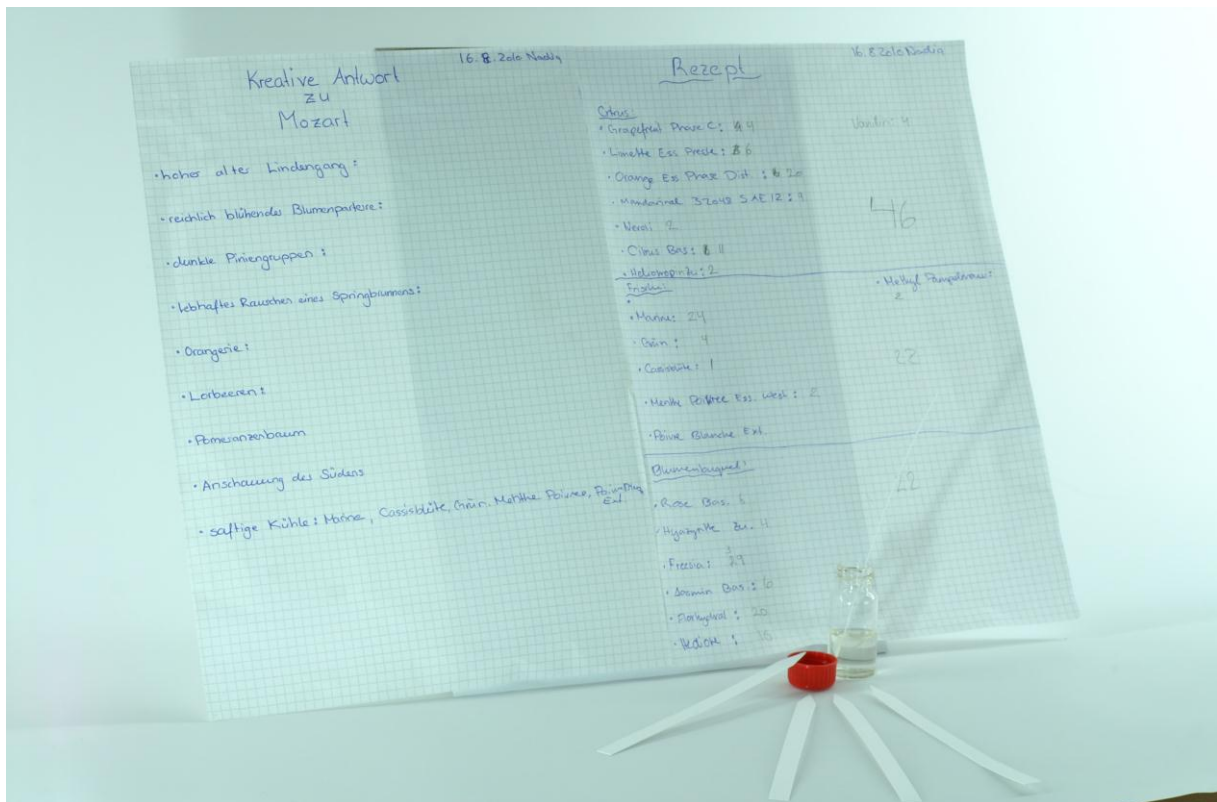 16.8.2010 Nadia
Kreative Antwort
zu
Mozart
• hoher alter Lindengang:
• reichlich blühendes Blumenparterre:
• dunkle Piniengruppen:
• lebhaftes Rauschen eines Springbrunnens:
• Orangerie:
• Lorbeeren:
• Pomeranzenbaum
• Anschauung des Südens
• saftige Kühle: Marine, Cassisblüte, Grün, Menthe Poivree,
Ext.
16.8.2010 Nadia
Rezept
Citrus:
• Grapefruit Phase C: 4
• Limette Ess Presse: 6
• Orange Ess Phase Dist.: 20
• Mandarinal 32048 SAE 12:
• Nerol: 2
• Citrus Bas: 11
• : 2
46
• Methyl
2
•
• Marine: 24
• Grün: 4
• Cassisblüte: 1
• Menthe Poivree Ess. : 2
• Poivre Blanche Ext.
22
Blumenbouquet:
• Rose Bas. 6
• Hyazinthe 4
• Freesia: 29
• Jasmin Bas.: 6
• Florhydral: 20
• Hedione: